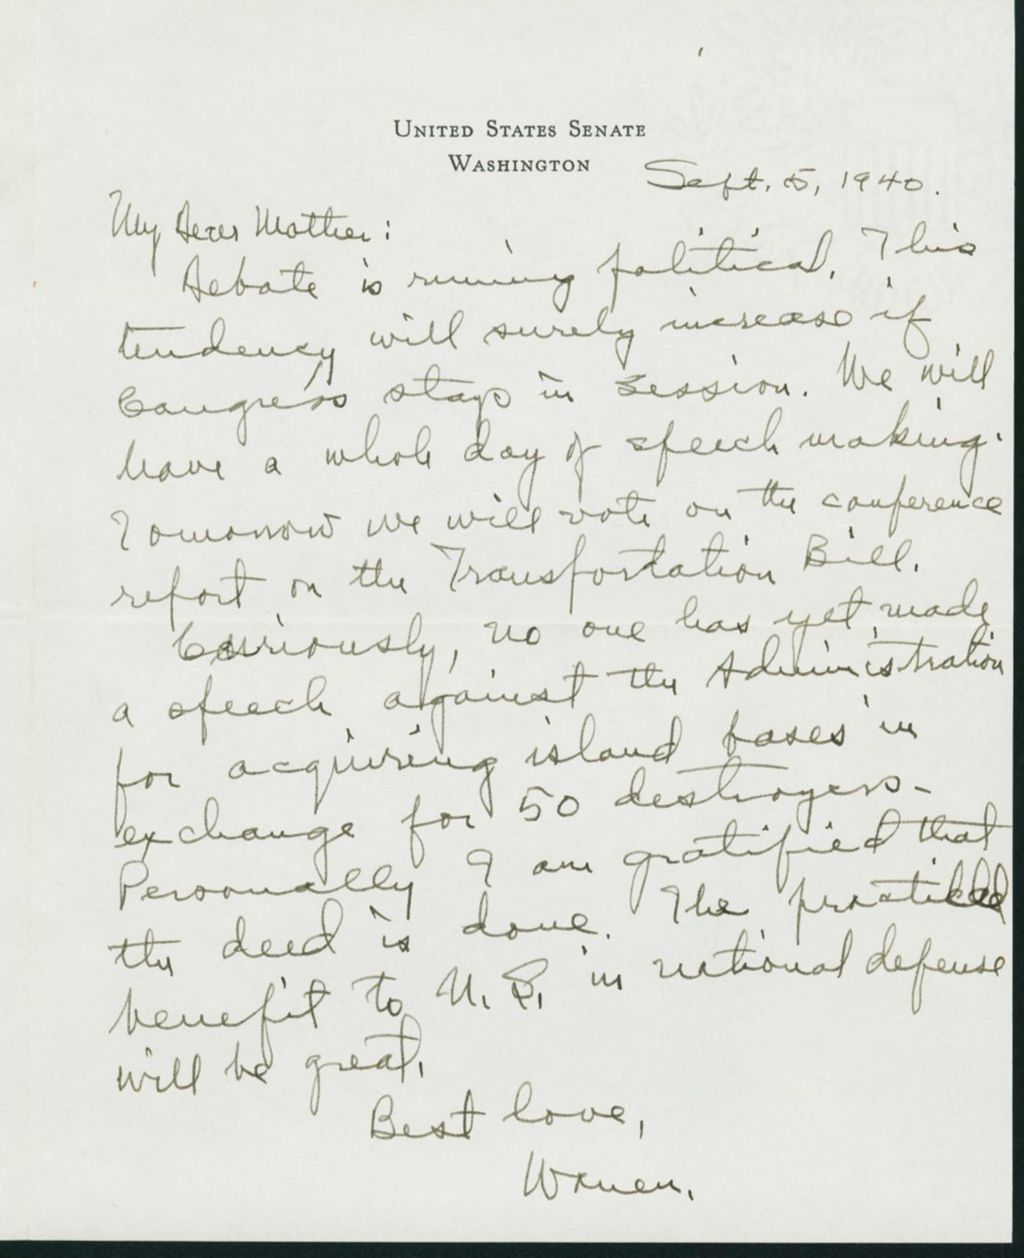 UNITED STATES SENATE
WASHINGTON
Sept. 5, 1940.
My Dear Mother:
Debate is running political. This
tendency will surely increase if
Congress stays in session. We will
have a whole day of speech making.
Tomorrow we will vote on the conference
report on the Transportation Bill.
Curiously, no one has yet made
a speech against the Administration
for acquiring island bases in
exchange for 50 destroyers-
Personally I am gratified that
the deed is done. The practical
benefit to U.S. in national defense
will be great.
Best love,
Warren.